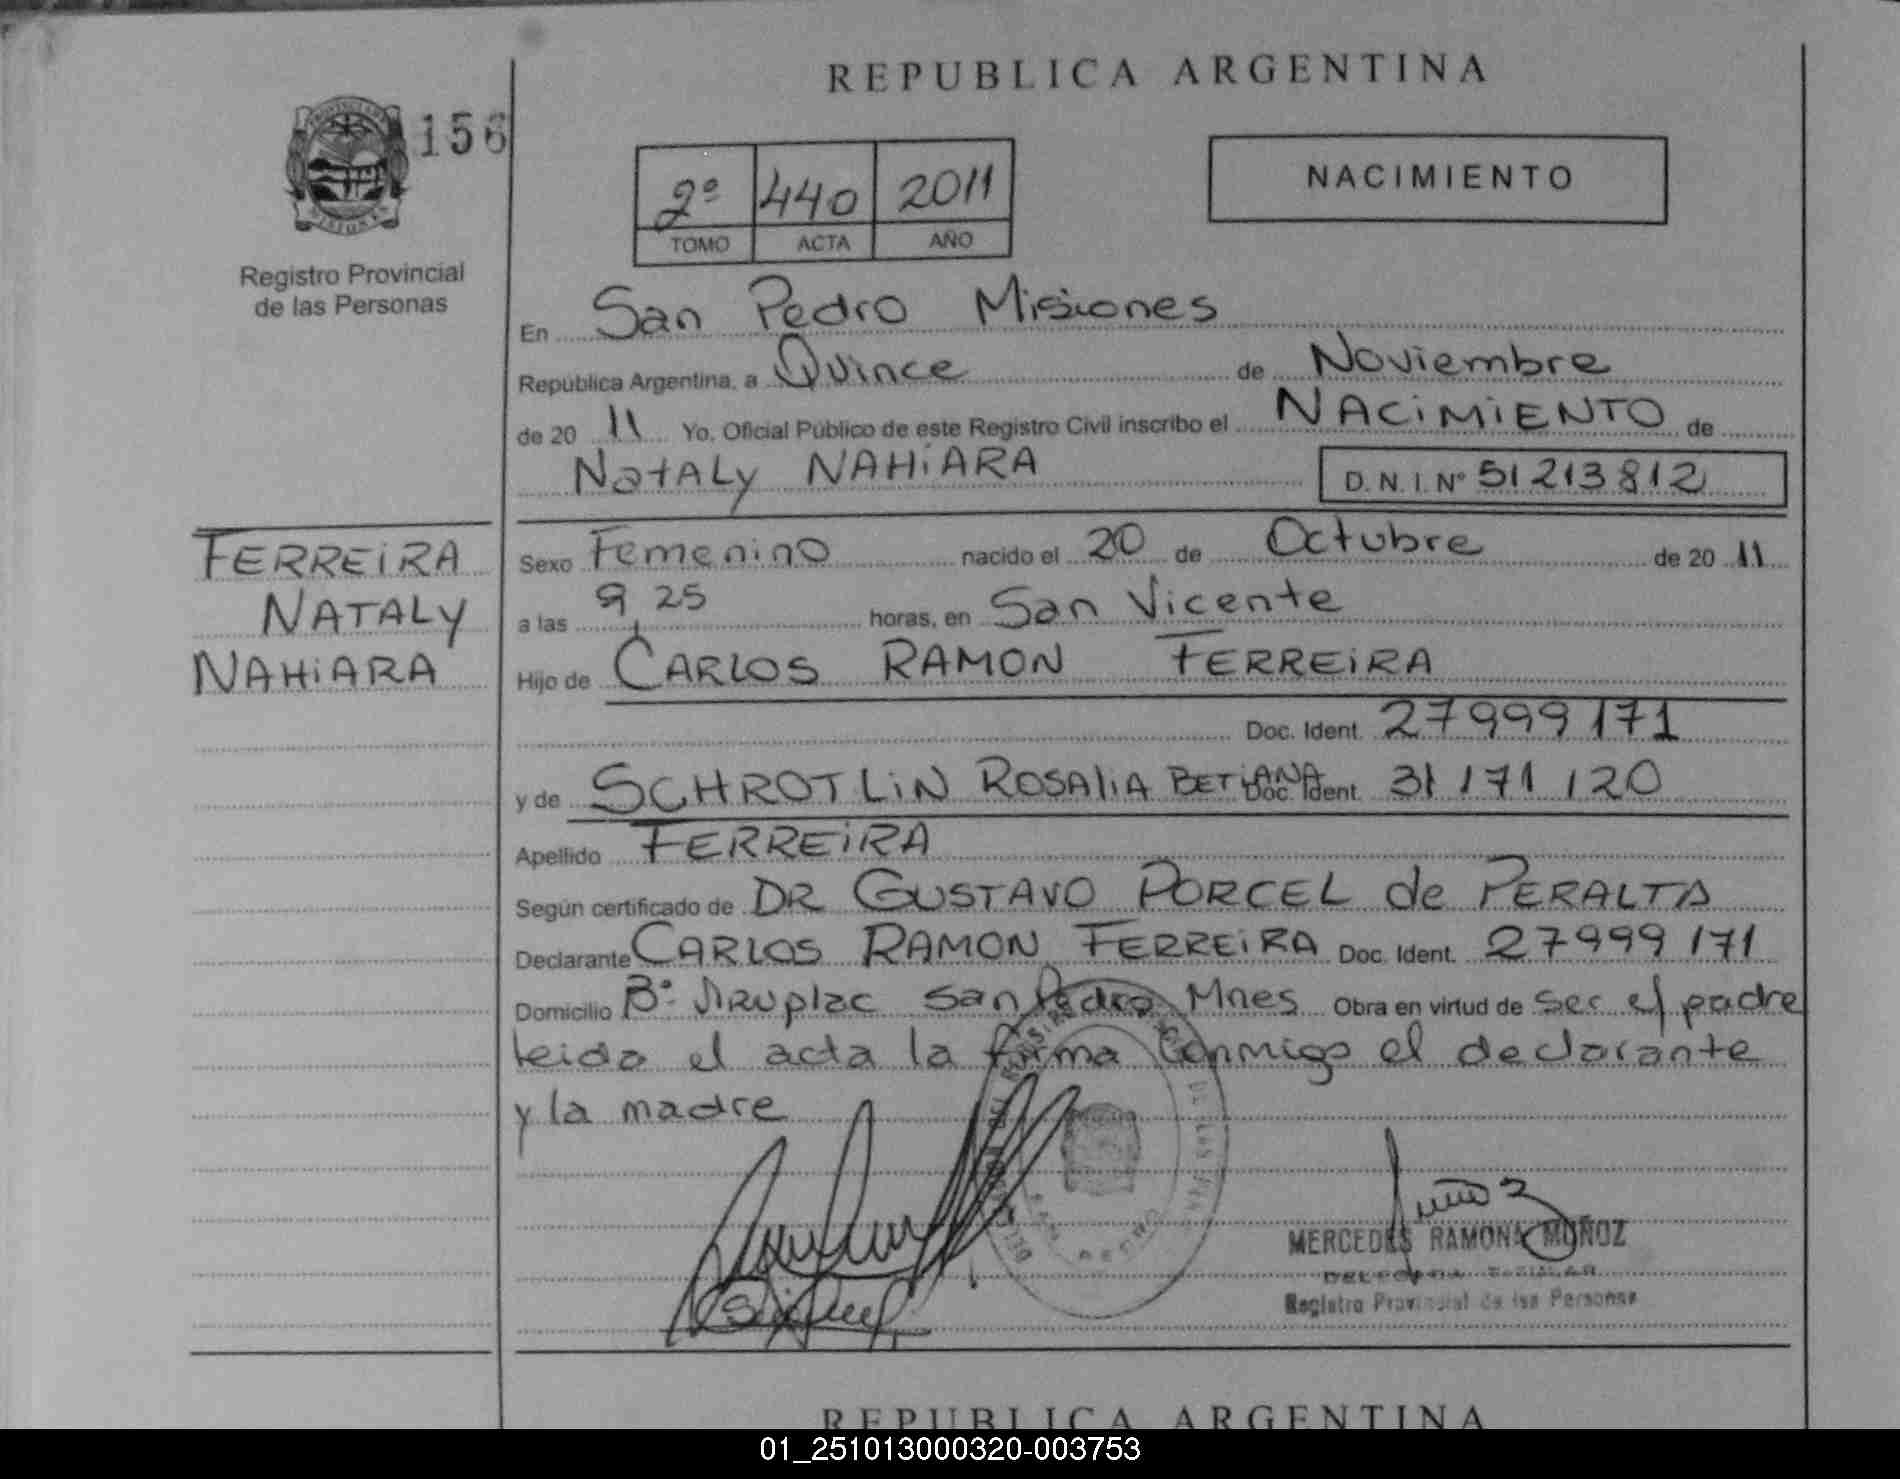 REPUBLICA ARGENTINA
156
NACIMIENTO
2º 440 2011
TOMO ACTA AÑO
Registro Provincial
de las Personas
En San Pedro Misiones
República Argentina, a Quince de Noviembre
de 20 11 Yo, Oficial Público de este Registro Civil inscribo el NACIMIENTO de
NATALY NAHIARA D.N.I. Nº 51213812
FERREIRA
NATALY
NAHIARA
Sexo Femenino nacido el 20 de Octubre de 20 11
a las 9,25 horas, en San Vicente
Hijo de CARLOS RAMON FERREIRA
Doc. Ident. 27999171
y de SCHROTLIN ROSALIA BETIANA Doc. Ident. 31171120
Apellido FERREIRA
Según certificado de DR GUSTAVO PORCEL de PERALTA
Declarante CARLOS RAMON FERREIRA Doc. Ident. 27999171
Domicilio Bº San Pedro Mnes Obra en virtud de ser el padre
leida el acta la firma conmigo el declarante
y la madre
MERCEDES RAMONA MUÑOZ
DELEGADA TITULAR
Registro Provincial de las Personas
REPUBLICA ARGENTINA
01_251013000320-003753